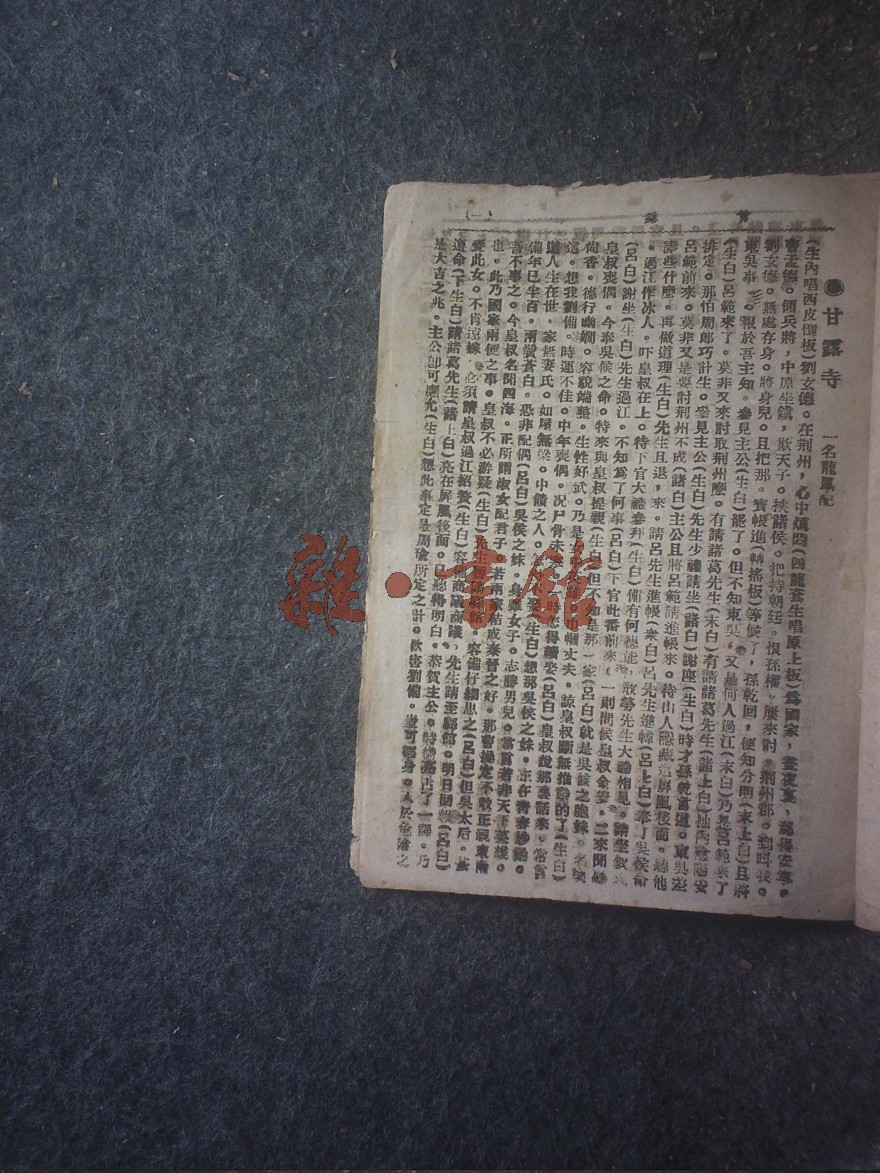 甘露寺 一名龍鳳配
(生內唱西皮倒板)劉玄德。在荆州，心中煩悶(四龍套生唱原上板)爲國家，晝夜憂，
曹孟德。領兵將，中原坐鎮，欺天子。挾諸侯。把持朝廷。恨孫權。屢來討。荆州郡。
劉玄德。無處存身。將身兒。且把那。寳帳進(轉搖板)等候了，孫乾回，便知分明(末上白)且將
東吳事。報於吾主知。參見主公(生白)罷了。但不知東吳。又是何人過江(末白)乃是呂範來了
(生白)呂範來了。莫非又來討取荆州麼。有請諸葛先生(末白)有請諸葛先生(諸上白)
排定。那怕周郎巧計生。參見主公(生白)先生少禮請坐(諸白)謝座(生白)時才孫乾言道。東吳差
呂範前來。莫非又是要討荆州不成(諸白)主公且將呂範請進帳來。待山人隱藏這屏風後面。聽他
講些什麼。再做道理(生白)先生且退，來。請呂先生進帳(衆白)呂先生進帳(呂上白)奉了吳侯命
。過江作冰人。吓皇叔在上。待下官大禮參拜(生白)備有何德能。敢勞先生大禮相見。請坐
(呂白)謝坐(生白)先生過江。不知爲了何事(呂白)下官此番前來。一則問候皇叔金安。二來聞聽
皇叔喪偶。今奉吳侯之命。特來與皇叔提親(生白)但不知是那一家(呂白)就是吳侯之胞妹。名喚
尚香。德行幽嫻。容貌端整。生性好武。乃是
道。想我劉備。時運不佳。中年喪偶。况尸骨未
道人生在世。家無妻氏。如屋無梁。中饋之人。
備年已半百。兩鬢蒼白。恐非配偶(呂白)吳侯之妹。身雖女子。志勝男兒。常言若非天下英雄。
吾不事之。今皇叔名聞四海。正所謂淑女配君子。若兩家結成秦晉之好。那曹操定不敢正視東南
也。此乃國家兩便之事。皇叔不必游疑(生白)
愛此女。不肯遠嫁。必須請皇叔過江招贅(生白)容備商議商議。先生請至驛館。明日回覆(呂白)
遵命(下生白)請諸葛先生(諸上白)亮在屏風後面。已聽得明白。恭賀主公。
是大吉之兆。主公即可應允(生白)想此事定是周瑜所定之計。欲害劉備。豈可輕身。入於危險之
(一)
雜·書館